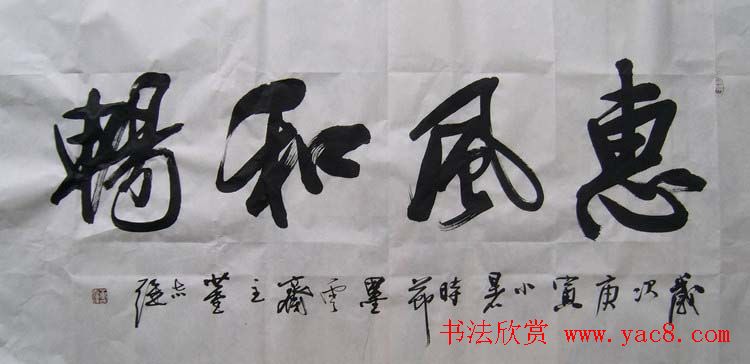 惠風和暢
歲次庚寅小暑時節墨雲齋主董志強
书法欣赏 www.yac8.com